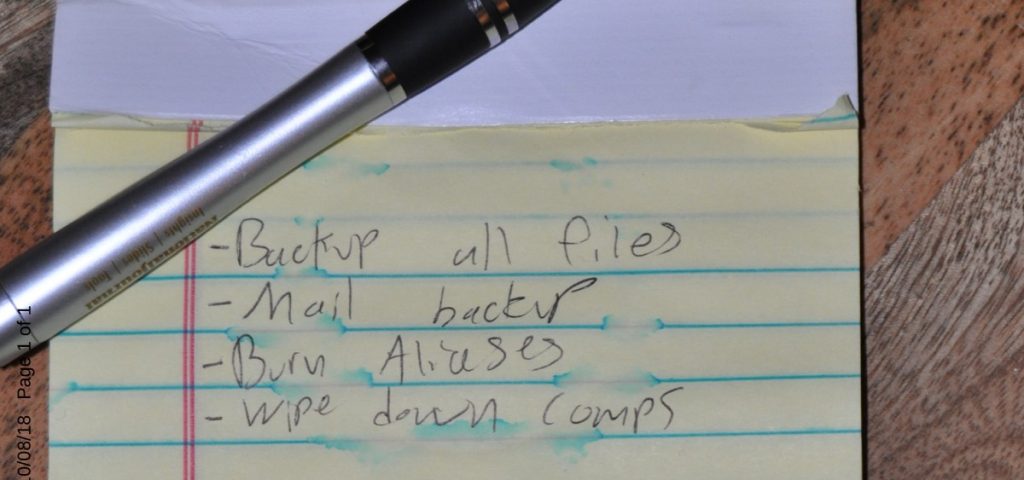 - Backup all files
- Mail backup
- Burn Aliases
- Wipe down Comps
Nationaljournal
Insights | Slides | Tools
10/08/18 Page 1 of 1